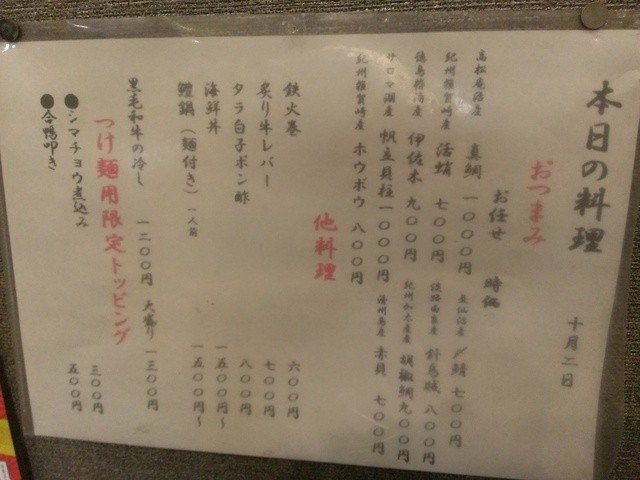 本日の料理
十月二日
おつまみ
お任せ 時価
高松庵治産 真鯛 一〇〇〇円
気仙沼産 〆鯖 七〇〇円
紀州雑賀崎産 活蛸 七〇〇円
淡路由良産 針烏賊 八〇〇円
徳島椿泊産 伊佐木 九〇〇円
紀州加太産 胡椒鯛 九〇〇円
サロマ湖産 帆立貝柱 一〇〇〇円
済州島産 赤貝 七〇〇円
紀州雑賀崎産 ホウボウ 八〇〇円
他料理
鉄火巻 六〇〇円
炙り牛レバー 七〇〇円
タラ白子ポン酢 八〇〇円
海鮮丼 一五〇〇円〜
鱧鍋(麺付き)一人前 一五〇〇円〜
黒毛和牛の冷し 一二〇〇円 大盛り 一三〇〇円
つけ麺用限定トッピング
●シマチョウ煮込み 三〇〇円
●合鴨叩き 五〇〇円